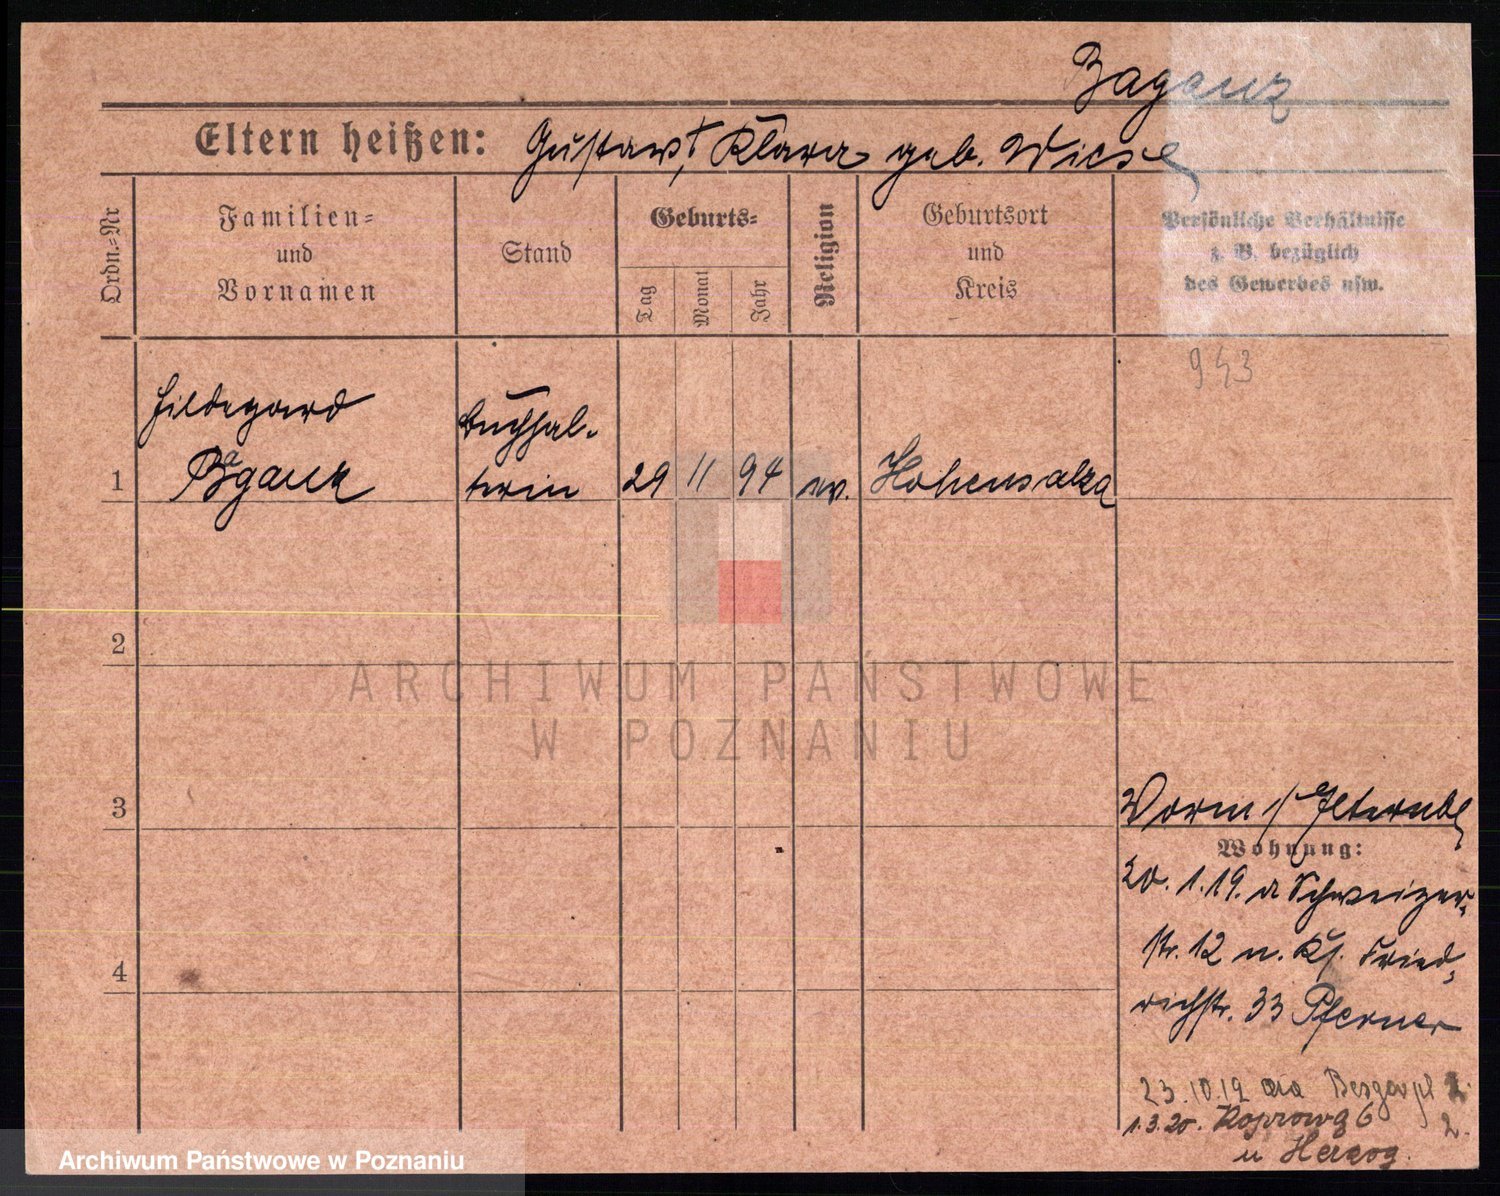 Baganz
Eltern heißen: Gustav †, Klara geb. Wiese
Ordn.-Nr
Familien-
und
Vornamen
Stand
Geburts-
Tag
Monat
Jahr
Religion
Geburtsort
und
Kreis
Persönliche Verhältnisse
z. B. bezüglich
des Gewerbes usw.
943
Hildegard
Baganz
Buchhal-
terin
1
29 11 94 ev. Hohensalza
2
ARCHIWUM PAŃSTWOWE
W POZNANIU
3
Worm
Wohnung:
20. 1. 19. a Schweizer-
str. 12 n. Ks. Fried-
richstr. 33 Pferner
4
23.10.19
1.3.20. Koprowa 6
2.
u Herzog.
Archiwum Państwowe w Poznaniu